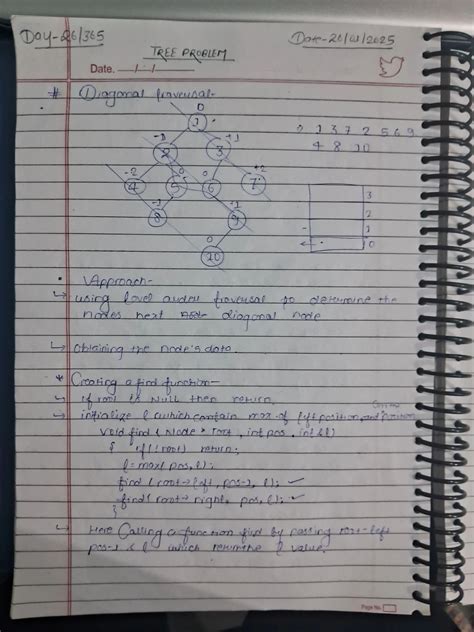 Day-26/365
Date-26/01/2025
TREE PROBLEM
Date. / /
# Diagonal traversal-
0
1
-1
+1
2
3
-2
0
0
+2
4
5
6
7
-1
+1
8
9
0
10
1 3 7 2 5 6 9
4 8 10
3
2
1
0
Approach-
using level order traversal to determine the
nodes next diagonal node
obtaining the node's data.
* Creating a find function-
if root is Null then return.
initialize l which contain max of left position and
void find (Node * root, int pos, int &l)
{ if(!root) return;
l=max(pos, l);
find (root->left, pos-1, l);
find( root->right, pos, l);
}
Here Calling a function find by passing root-left
pos-1 & l which returns l value.
Page No.